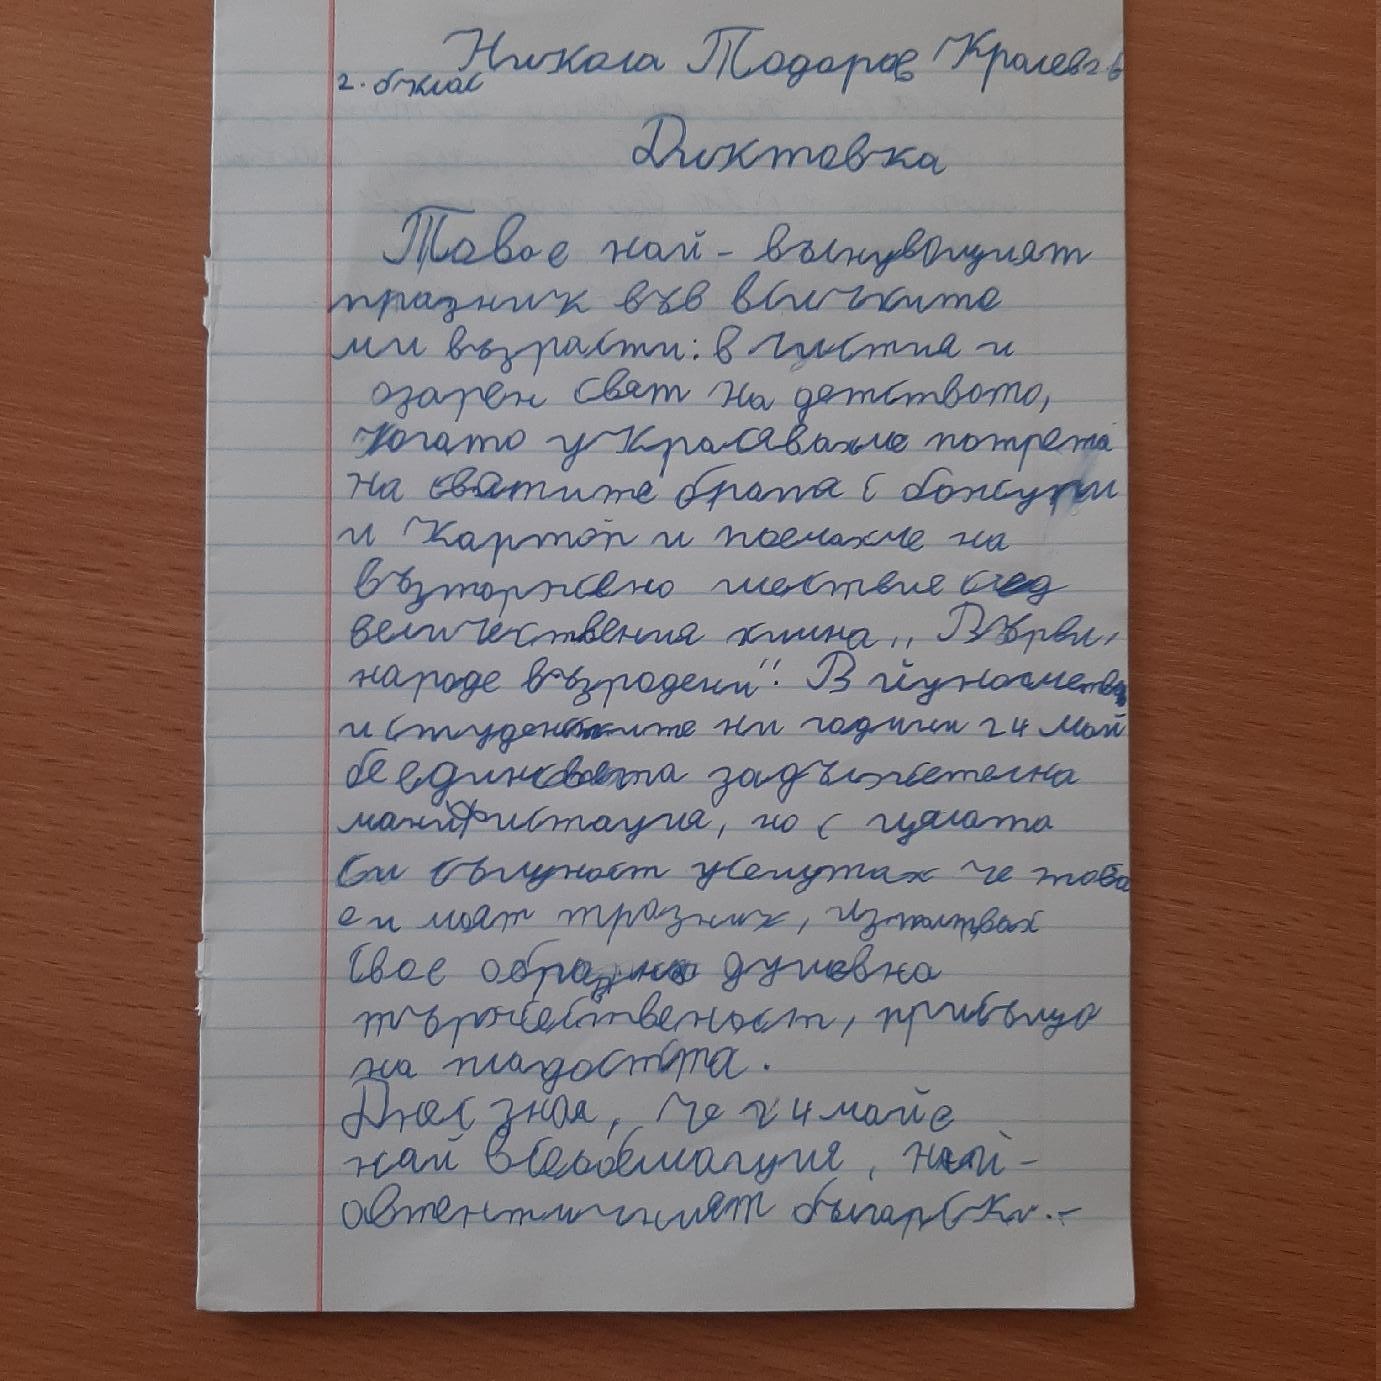 Никола Тодоров Кралев
2. б клас
Диктовка
Това е най-вълнуващият
празник във всичките
ми възрасти: в чистия и
озарен свят на детството,
когато украсявахме потрета
на святите братя с божури
и картоп и поемахме на
възторжено шествие след
величествения химна ,, Върви,
народе възродени". В йуношетво
и студентките ни години 24 май
бе единсвета задължителна
манифистация, но с цялата
си същност усещтах че това
е и моят празник, изпитвах
своеобразно душевна
тържественост, прибъщо
на младостта.
Днес зная, че 24 май е
най всеобемащия, най-
автентичният българск..-